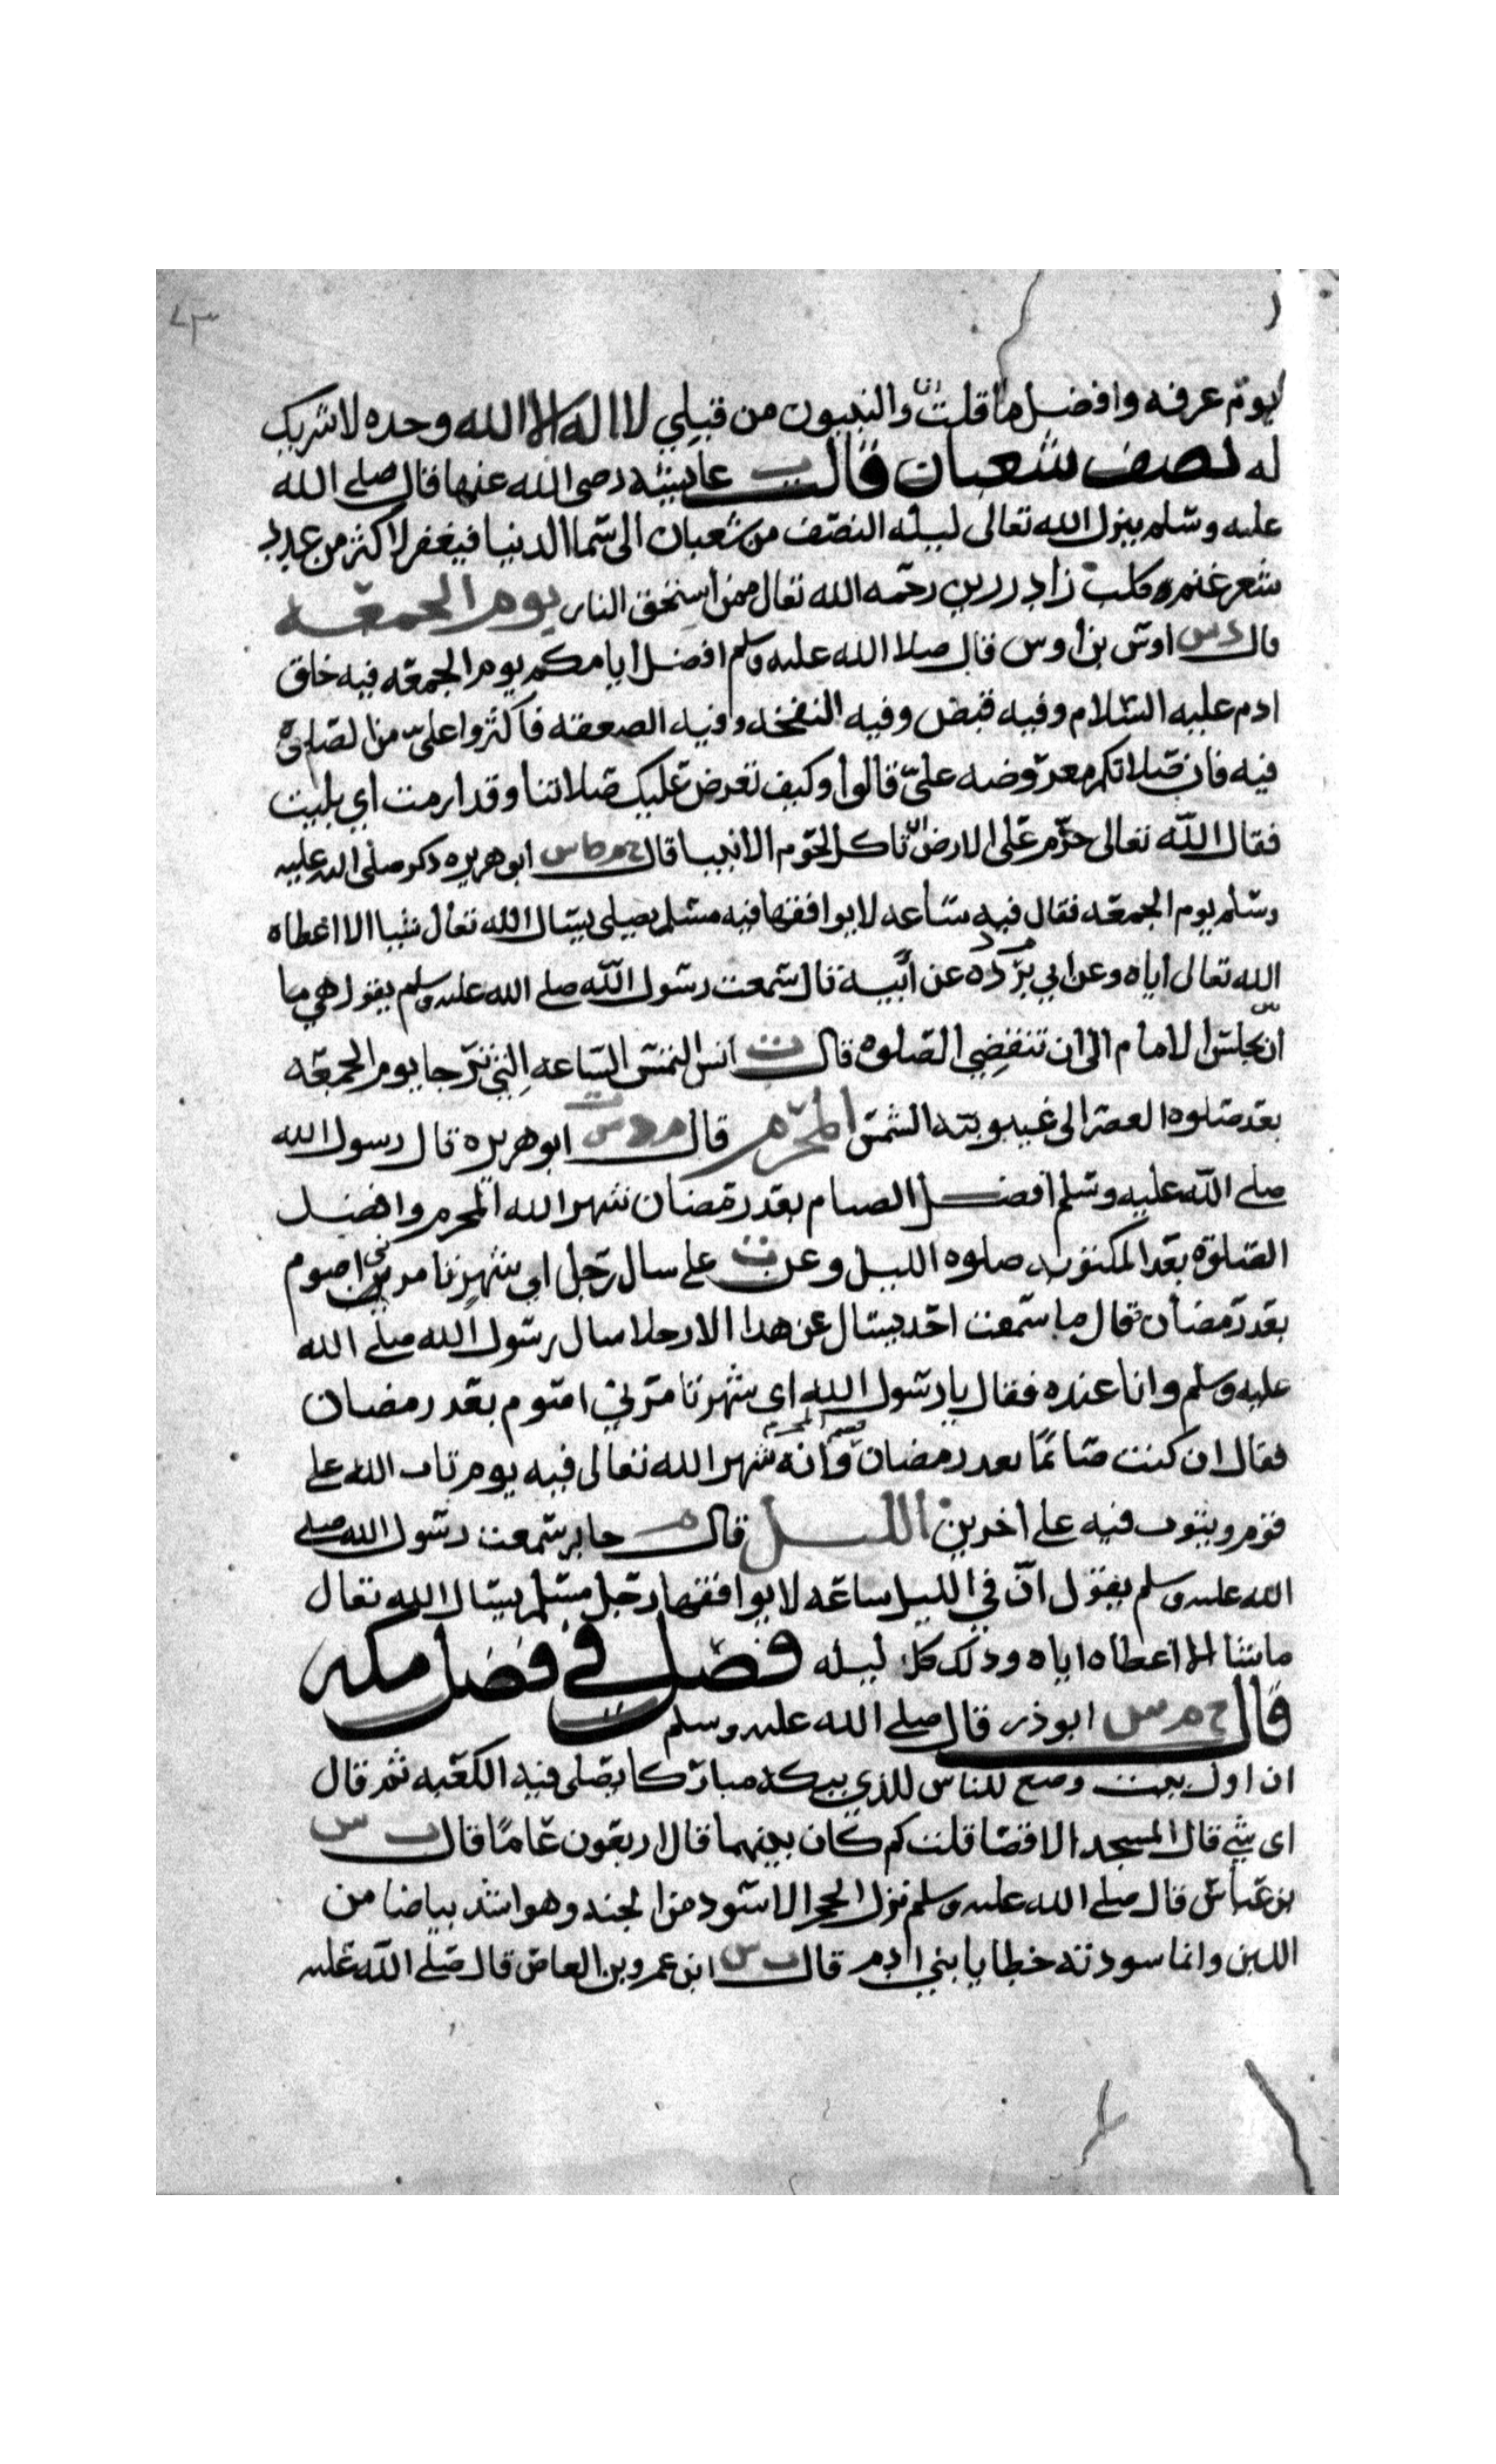 ٧٣
يوم عرفه وافضل ما قلت انا والنبيون من قبلي لا اله الا الله وحده لا شريك
له نصف شعبان قالت ت عايشه رضى الله عنها قال صلى الله
عليه وسلم ينزل الله تعالى ليله النصف من شعبان الى سما الدنيا فيغفر لاكثر من عدد
شعر غنم كلب زاد رزين رحمه الله تعالى ممن استحق النار يوم الجمعه
قال د س اوس بن اوس قال صلا الله عليه وسلم افضل ايامكم يوم الجمعه فيه خلق
ادم عليه السلام وفيه قبض وفيه النفخه وفيه الصعقه فاكثروا علي من الصلوة
فيه فان صلاتكم معروضه علي قالوا وكيف تعرض عليك صلاتنا وقد ارمت اي بليت
فقال الله تعالى حرم على الارض ان تاكل لحوم الانبيا قال خ م ط س ابو هريره ذكر صلى الله عليه
وسلم يوم الجمعه فقال فيه ساعه لا يوافقها فيه مسلم يصلي يسال الله تعالى شيا الا اعطاه
الله تعالى اياه وعن م د ابي برده عن ابيه قال سمعت رسول الله صلى الله عليه وسلم يقول هي ما
بين ان يجلس الامام الى ان تنقضي الصلوه قال ت انس التمس الساعه التي ترجا يوم الجمعه
بعد صلوه العصر الى غيبوبته الشمس المحرم قال م د ت س ابو هريره قال رسول الله
صلى الله عليه وسلم افضل الصيام بعد رمضان شهر الله المحرم وافضل
الصلوة بعد المكتوبه صلوه الليل وعن ت على سال رجل اي شهر تامرني اصوم
بعد رمضان قال ما سمعت احد يسال عن هذا الا رجلا سال رسول الله صلى الله
عليه وسلم وانا عنده فقال يا رسول الله اى شهر تامرني اصوم بعد رمضان
فقال ان كنت صائما بعد رمضان فصم المحرم فانه شهر الله تعالى فيه يوم تاب الله على
قوم ويتوب فيه على اخرين الليل قال م جابر سمعت رسول الله صلى
الله عليه وسلم يقول ان في الليل ساعه لا يوافقها رجل مسلم يسال الله تعالى
ما شا الا اعطاه اياه وذلك كل ليله فصل في فضل مكه
قال خ م س ابو ذر قال صلى الله عليه وسلم
ان اول بيت وضع للناس للذي ببكه مباركا يصلى فيه الكعبه ثم قال
اى شي قال المسجد الاقصا قلت كم كان بينهما قال اربعون عاما قال ت س
بن عباس قال صلى الله عليه وسلم نزل الحجر الاسود من الجنه وهو اشد بياضا من
اللبن وانما سودته خطايا بني ادم قال ت س ابن عمرو بن العاص قال صلى الله عليه